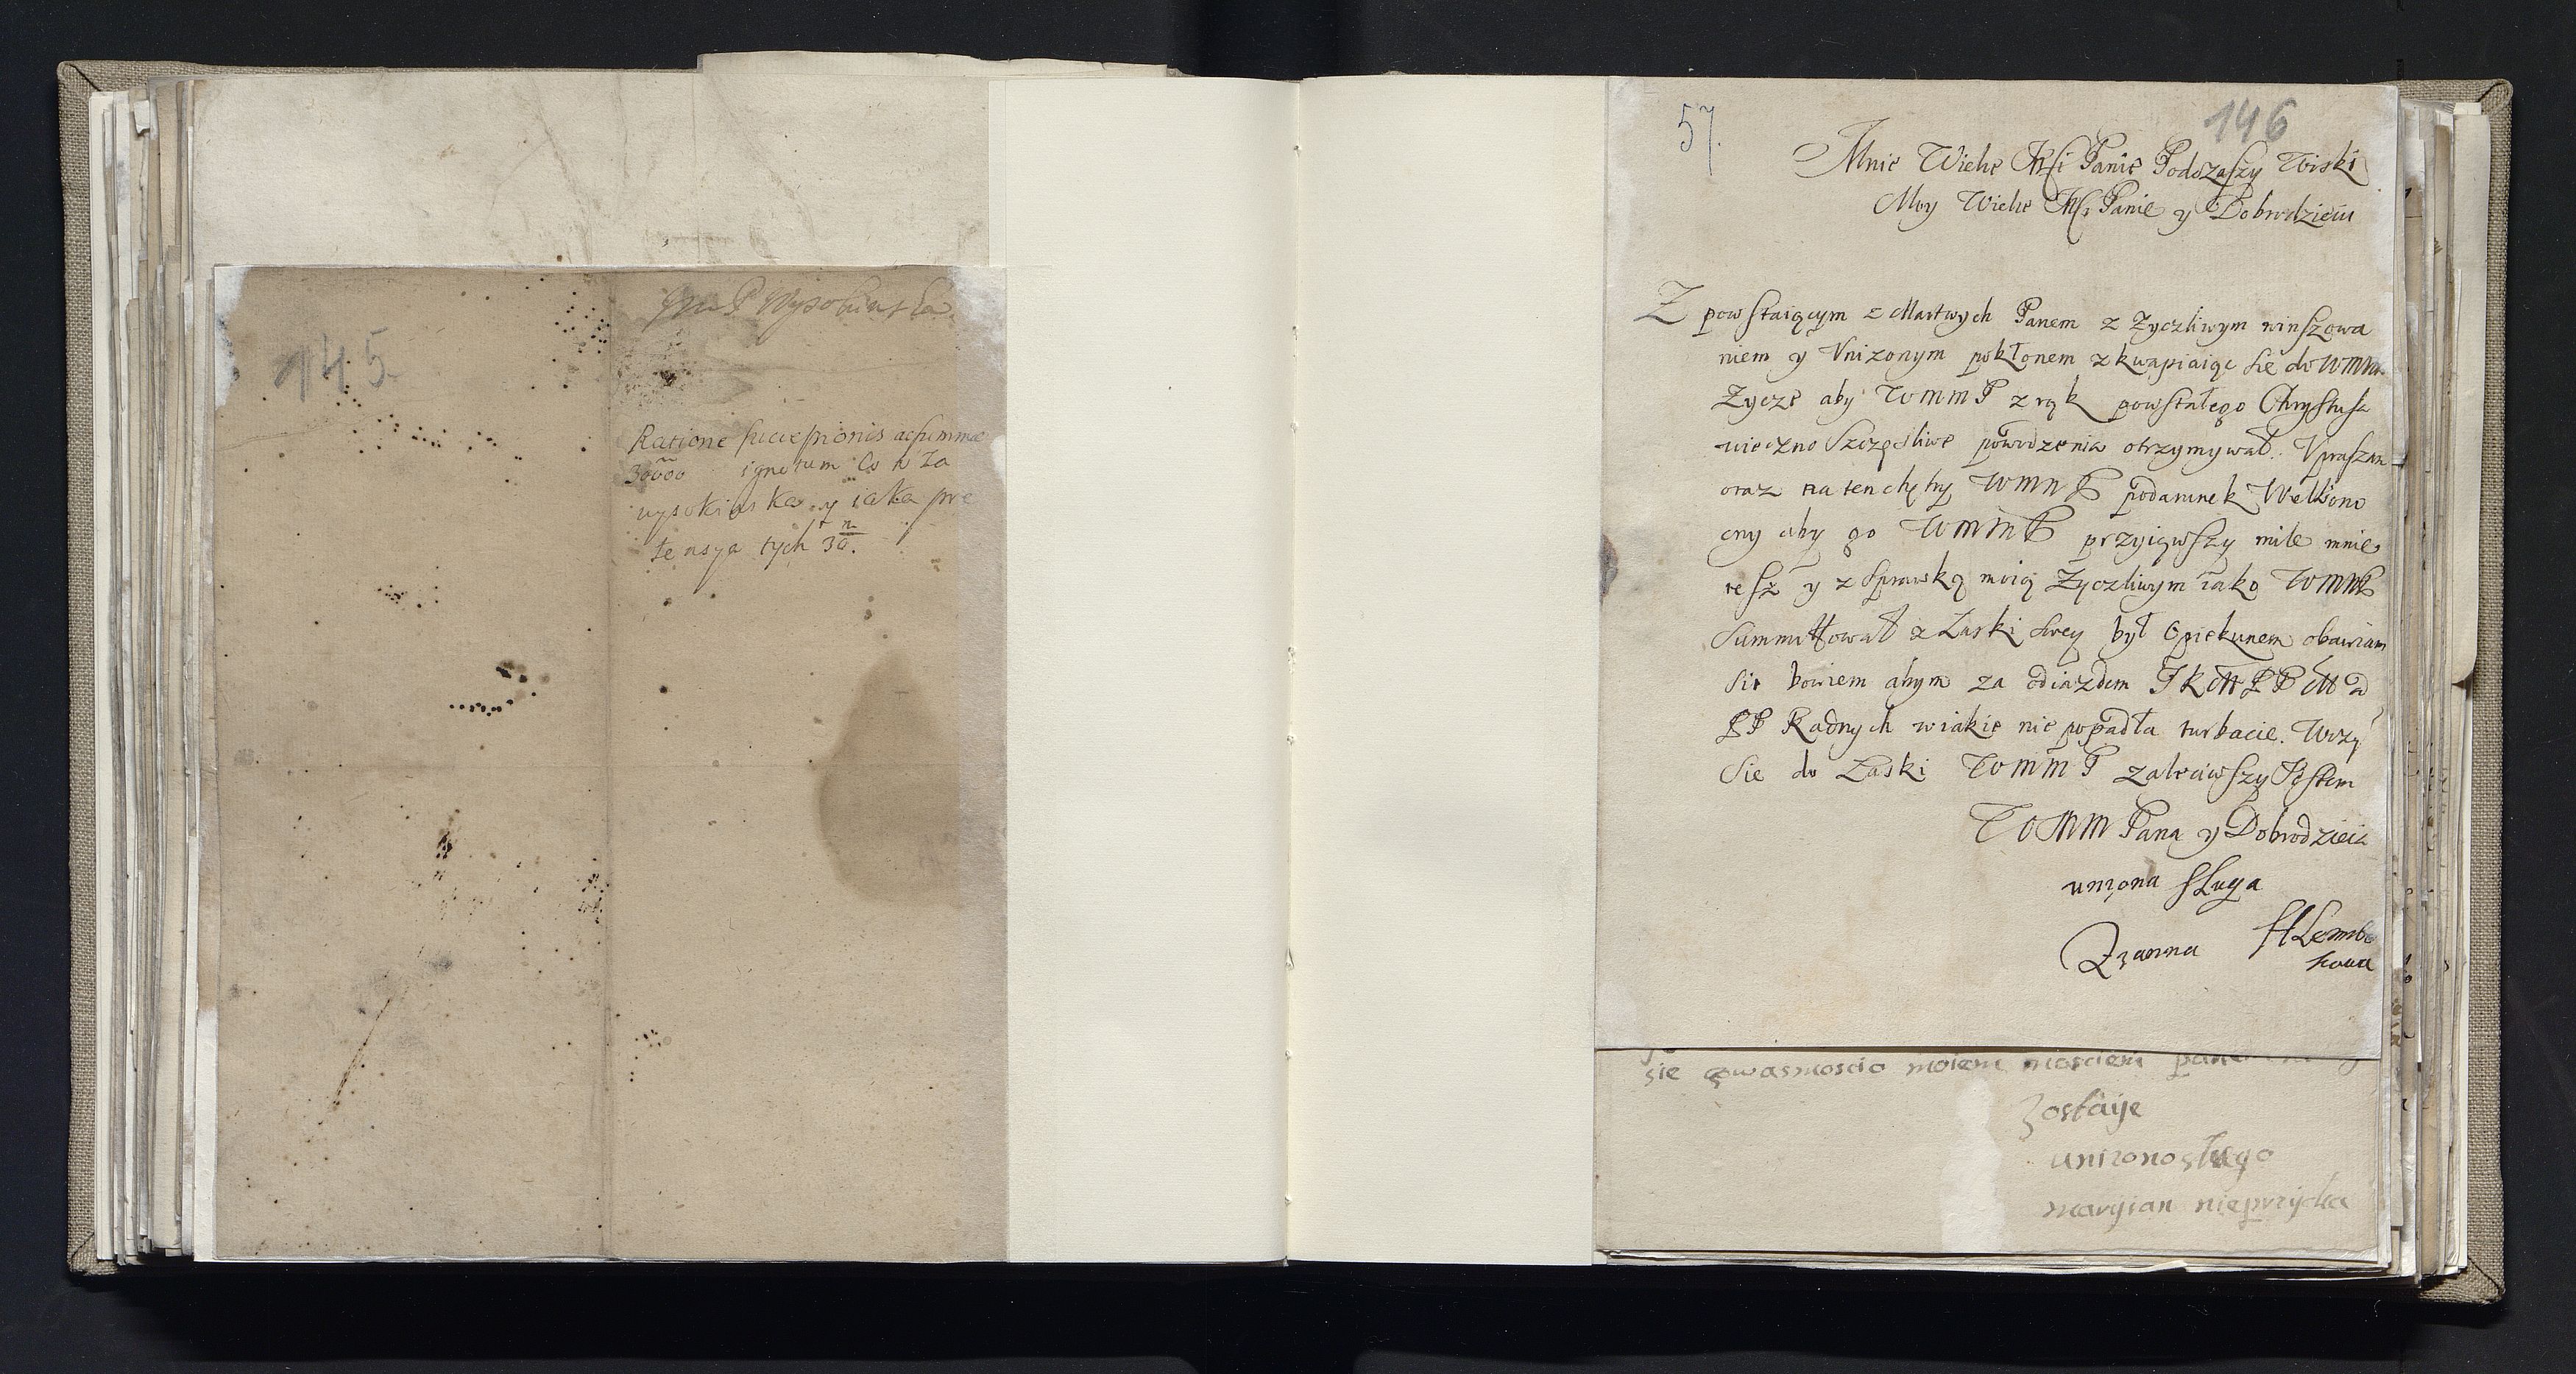 145
JmP Wysokinska
Ratione susceptionis ac summæ
30000 ignotum Co to Za
wysokinska y iaka pre
tensya tych 30.
57.
146
Mnie Wielce Mſi Panie Podszaszy
Moy Wielce Mſi Panie y Dobrodzieiu
Z powſtaiącym z Martwych Panem z Zyczliwym winſzowa
niem y Vnizonym pokłonem zkwapiaiąc się do WMM
Zyczę aby WMMP z rąk powſtałego Chryſtuſa
wieczno Szczęśliwe powodzenia otrzymywał. Vpraſzam
oraz na ten WMMP podarunek
aby go WMMP przyiąwſzy mile mnie
y z Sprawką moią Zyczliwym iako WMMP
z Laski swey był Opiekunem obawiam
się bowiem abym za odiazdem JKM PP M
PP Radnych w iakie nie popadła turbacie.
Sie do Laski WMMP zaleciwſzy Jeſtem
WMM Pana y Dobrodzieia
unizona ſługa
Zzanna
kowa
sie wasmoscio moiem mosciem
zostaije
unizono sługo
maryian nieprzycka